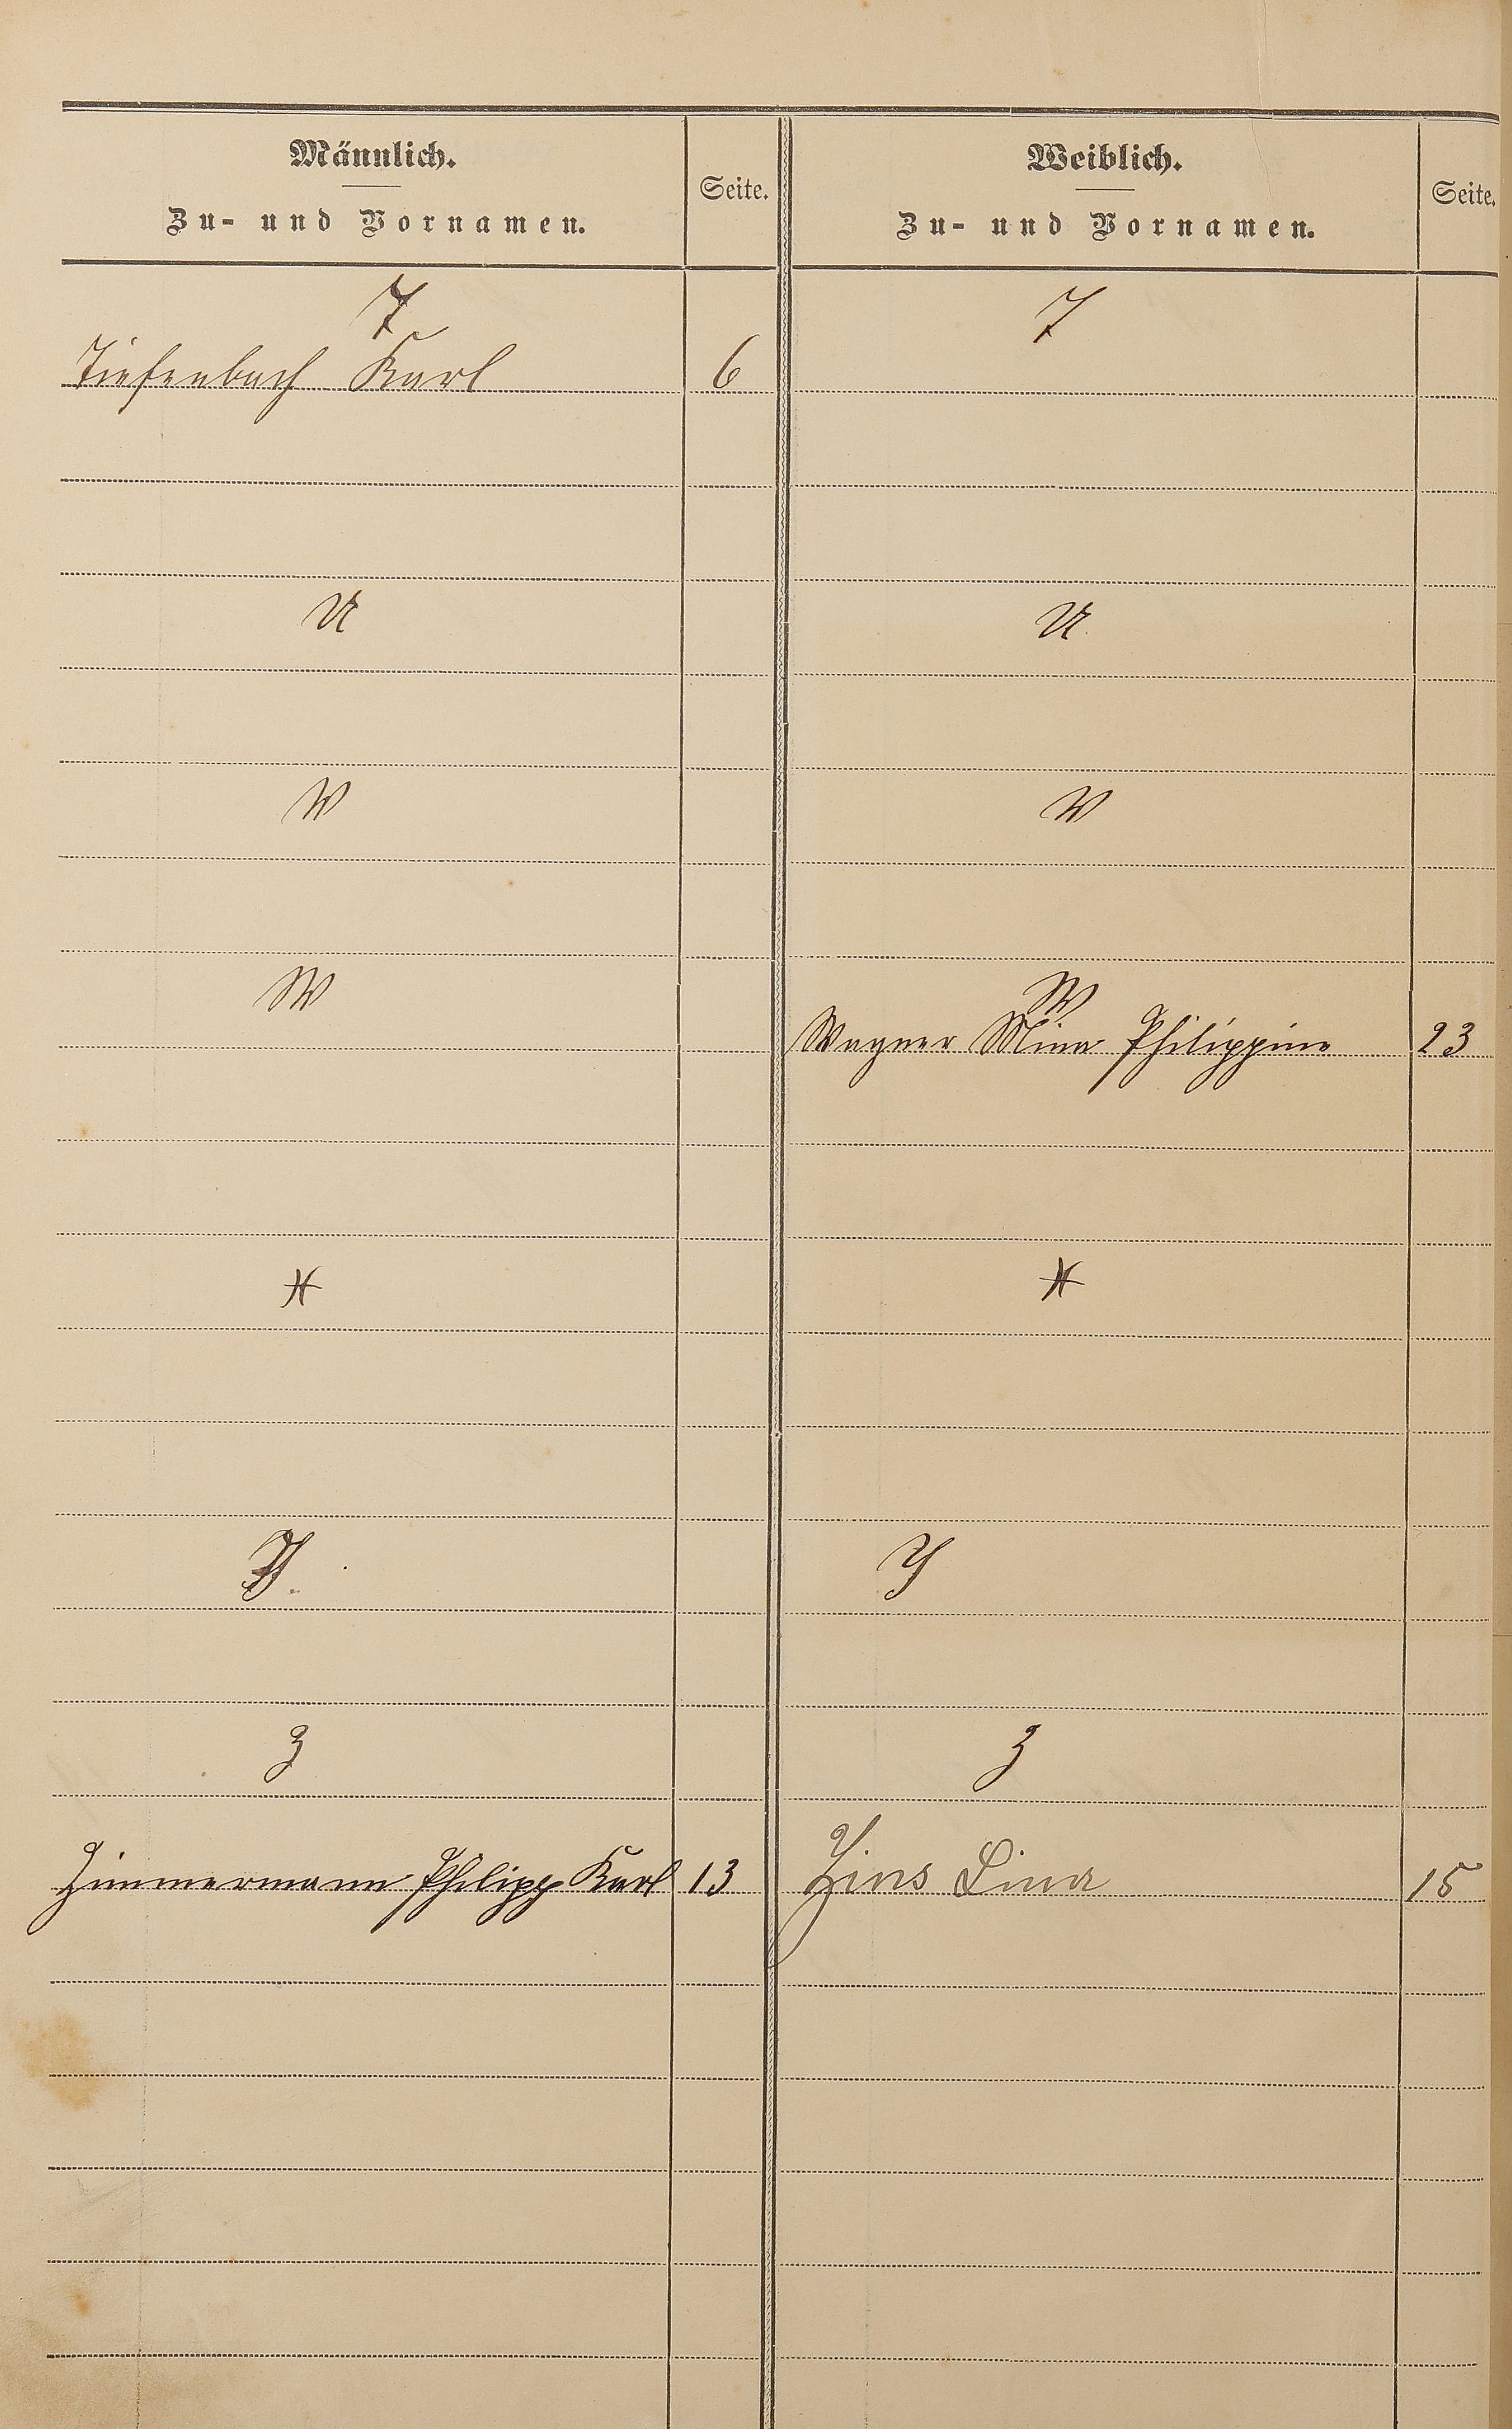 Männlich.
Zu- und Vornamen.
Seite.
Weiblich.
Zu- und Vornamen.
Seite.
T
T
Tiefenbach Karl 6
U
U
V
V
W
W
Wagner Mina Philippine 23
X
X
Y.
Y
Z
Z
Zimmermann Philipp Karl 13
Zins Lina 15